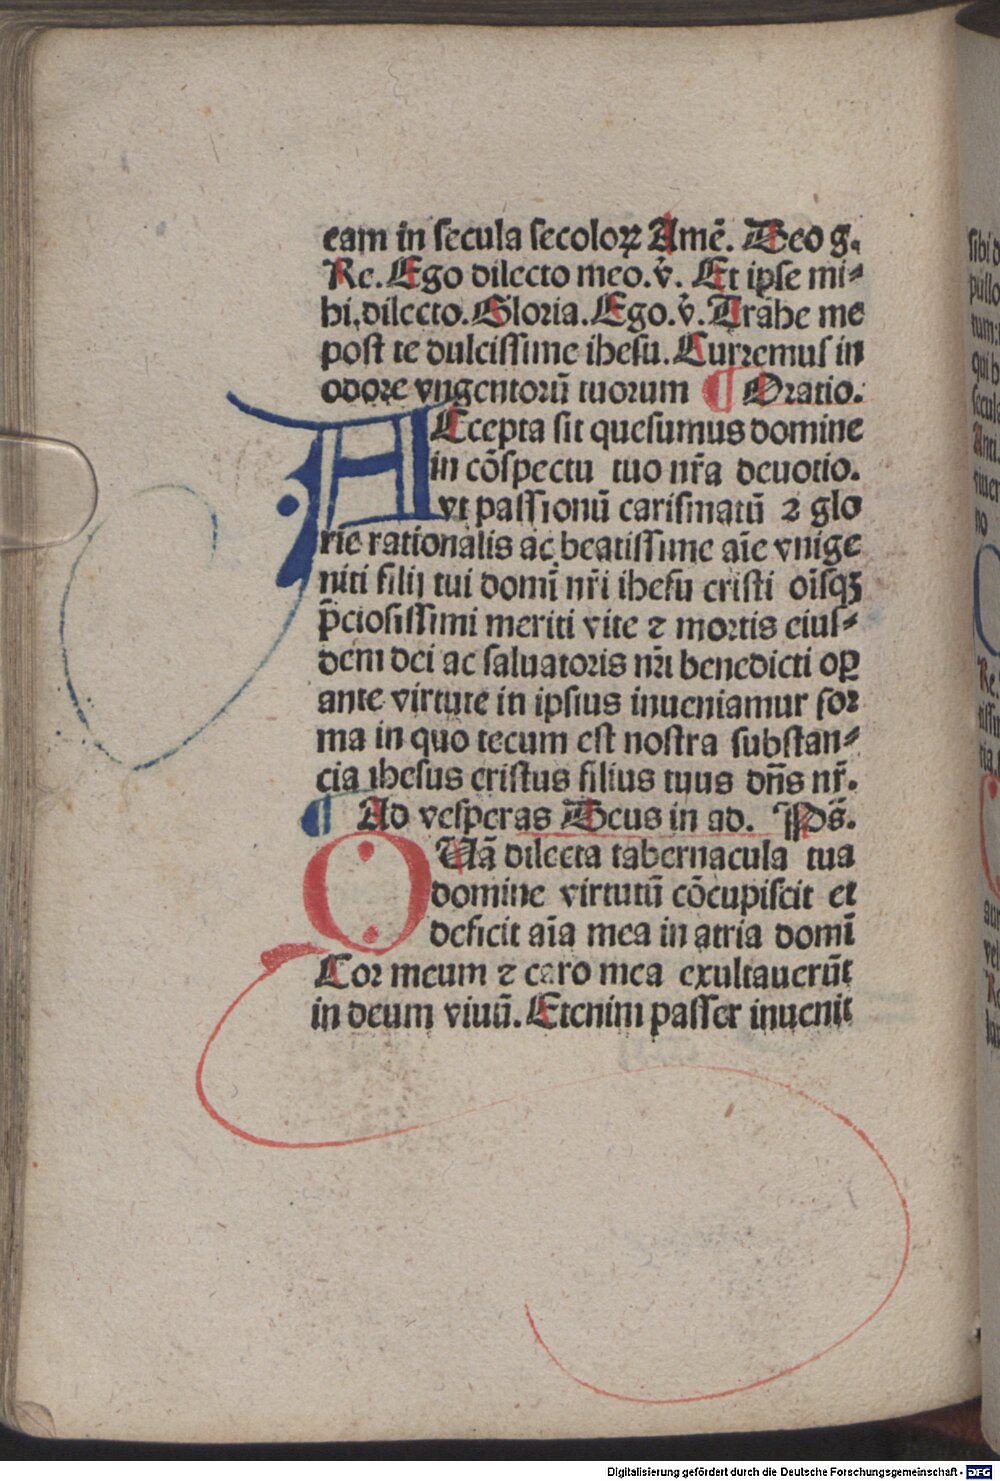 eam in secula secoloꝝ Amē. Deo g.
Re. Ego dilecto meo. v̇. Et ipse mi⸗
hi, dilecto. Gloria. Ego. v̇. Trahe me
post te dulcissime ihesu. Curremus in
odore vngentorū tuorum ¶ Oratio.
ACcepta sit quesumus domine
in cōspectu tuo nr̄a deuotio.
vt passionū carismatū ꝛ glo
rie rationalis ac beatissime aīe vnige
niti filij tui domī nr̄i ihesu cristi oīsqꝫ
p̄ciosissimi meriti vite ꝛ mortis eius⸗
dem dei ac saluatoris nr̄i benedicti oꝑ
ante virtute in ipsius inueniamur for
ma in quo tecum est nostra substan⸗
cia ihesus cristus filius tuus dn̄s nr̄.
¶ Ad vesperas Deus in ad. Ps̄.
QUā dilecta tabernacula tua
domine virtutū cōcupiscit et
deficit aīa mea in atria domī
Cor meum ꝛ caro mea exultauerūt
in deum viuū. Etenim passer inuenit
Digitalisierung gefördert durch die Deutsche Forschungsgemeinschaft - DFG